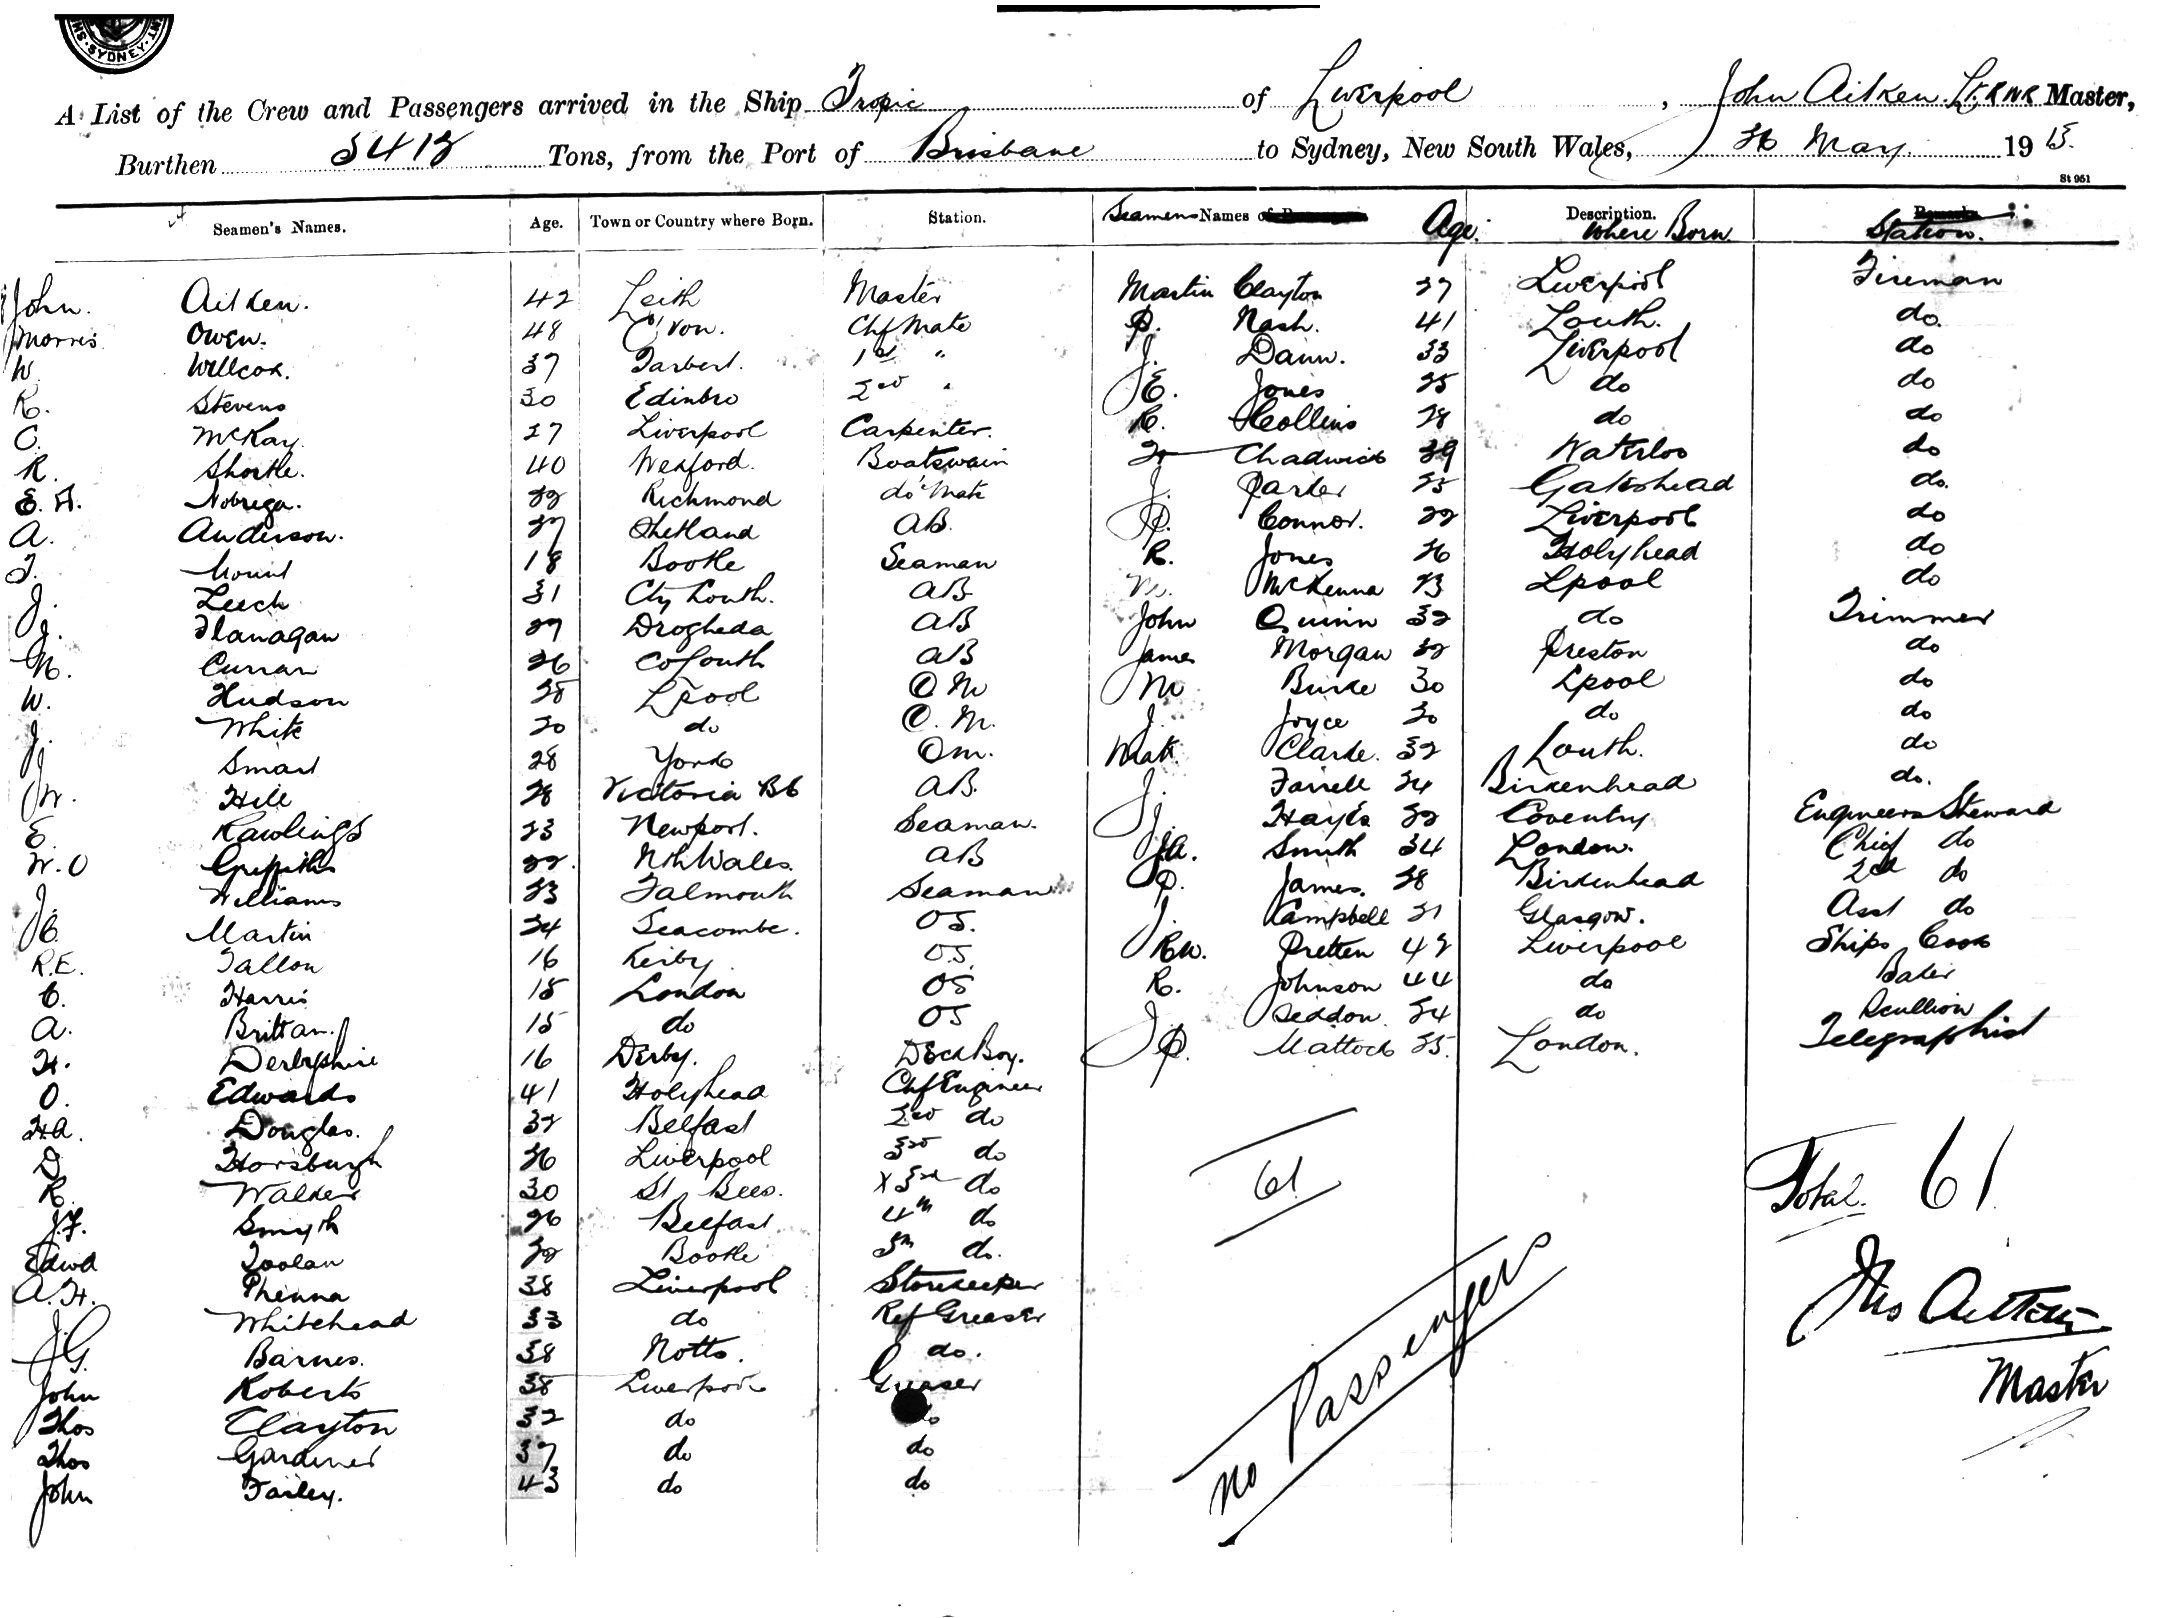 SYDNEY
A List of the Crew and Passengers arrived in the Ship Tropic of Liverpool, John Aitken Lt. RNR Master,
Burthen 5418 Tons, from the Port of Brisbane to Sydney, New South Wales, 26 May 1915.
St 951
Seamen's Names. Age. Town or Country where Born. Station.
John. Aitken. 42 Leith Master
Morris Owen. 48 C'von. Chf Mate
W. Willcox. 37 Tarbert. 1st "
R. Stevens 30 Edinbro 2nd "
C. McKay. 27 Liverpool Carpenter.
R. Shortle. 40 Wexford. Boatswain
E. A. Nobrega. 32 Richmond do Mate
A. Anderson. 27 Shetland AB.
T. Mount 18 Bootle Seaman
J. Leech 31 Cty Louth. AB
J. Flanagan 29 Drogheda AB
N. Curran 26 Co Louth AB
W. Hudson 25 Lpool Q M
J. White 20 do Q. M.
J. Smart 28 York Qm.
W. Hill 28 Victoria BC AB.
E. Rawlings 23 Newport. Seaman.
W. O Griffiths 22. Nth Wales. AB
J. Williams 23 Falmouth Seaman
C. Martin 24 Seacombe. OS.
R.E. Tallon 16 Kirby OS.
C. Harris 15 London OS
A. Brittan. 15 do OS
H. Derbyshire 16 Derby. Deck Boy.
O. Edwards 41 Holyhead Chf Engineer
HA. Douglas. 32 Belfast 2nd do
D. Horsburgh 26 Liverpool 3rd do
R. Walker 30 St Bees. X 3rd do
J.F. Smyth 26 Belfast 4th do
Edwd Toolan 32 Bootle 5th do.
A.H. Phenna 38 Liverpool Storekeeper
J. Whitehead 33 do Ref Greaser
G. Barnes. 38 Notts. do.
John Roberts 38 Liverpool Greaser
Thos Clayton 32 do do
Thos Gardiner 37 do do
John Farley. 43 do do
Seamens Names of Age. Description. Where Born Remarks Station.
Martin Clayton 27 Liverpool Fireman
P. Nash. 41 Louth. do.
J. Dann. 33 Liverpool do
E. Jones 25 do do
R. Collins 28 do do
Chadwick 39 Waterloo do
J. Parker 25 Gateshead do.
P. Connor. 22 Liverpool do
R. Jones 26 Holyhead do
McKenna 23 Lpool do
John Quinn 32 do Trimmer
James Morgan 32 Preston do
M Burke 30 Lpool do
J. Joyce 20 do do
Clarke. 32 Louth. do
J. Farrell 24 Birkenhead do.
J. Hayes 22 Coventry Engineers Steward
JA. Smith 34 London. Chief do
P. James. 28 Birkenhead 2nd do
J. Campbell 21 Glasgow. Asst do
RW. Pretten 42 Liverpool Ships Cook
R. Johnson 44 do Baker
J. Seddon 24 do Scullion
P. Mattock 25. London. Telegraphist
61
Total. 61
No Passengers
Jno Aitken
Master